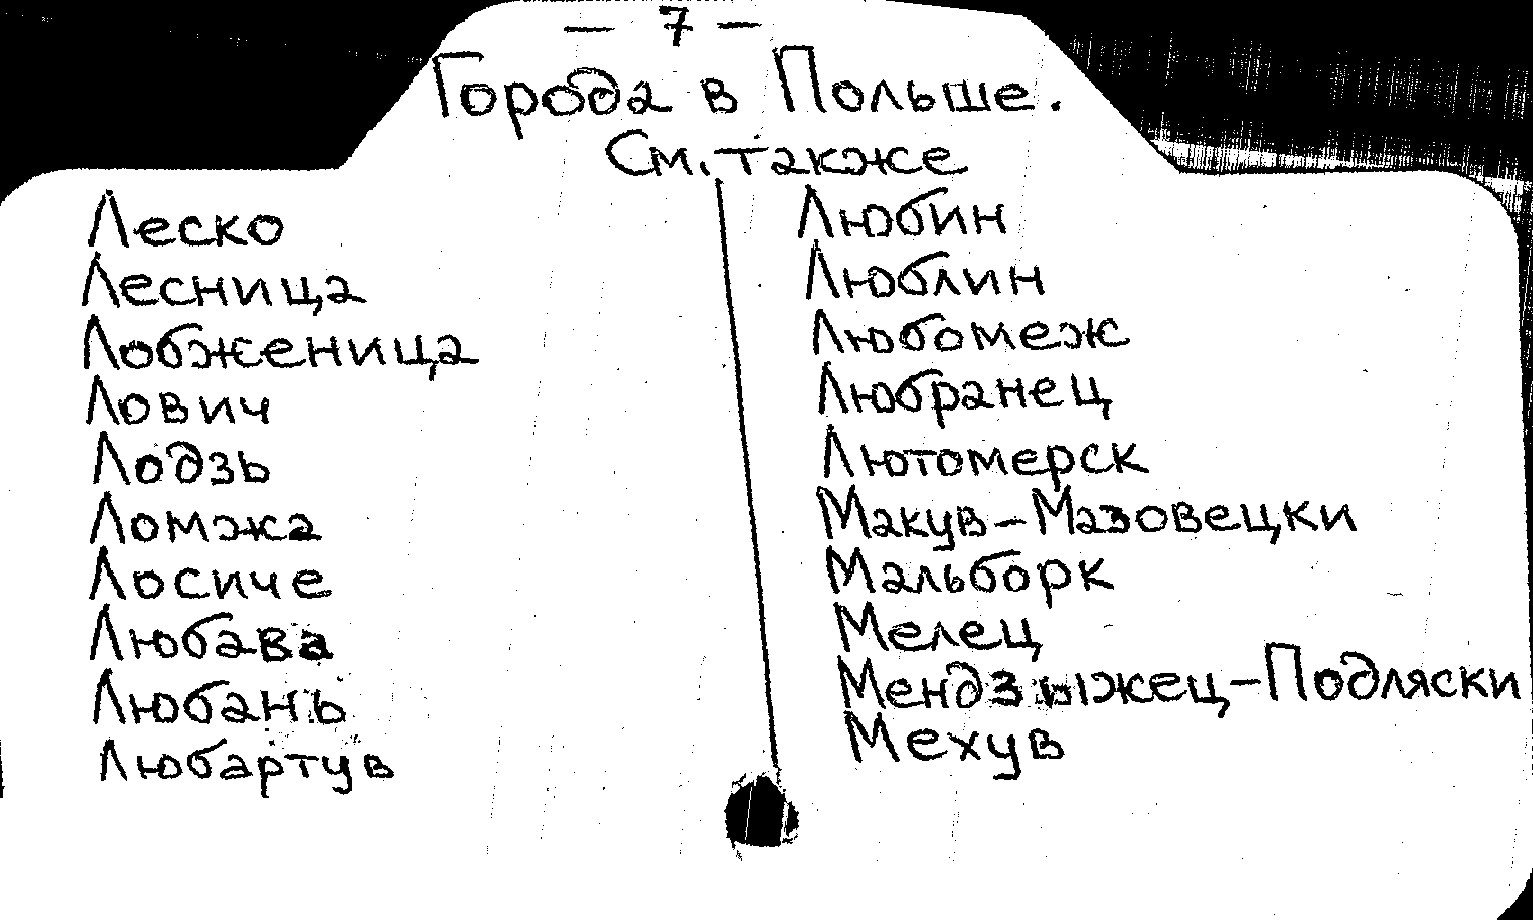 — 7 —
Города в Польше.
См. также
Леско
Лесница
Лобженица
Лович
Лодзь
Ломжа
Лосиче
Любава
Любань
Любартув
Любин
Люблин
Любомеж
Любранец
Лютомерск
Макув-Мазовецки
Мальборк
Мелец
Мендзыжец-Подляски
Мехув